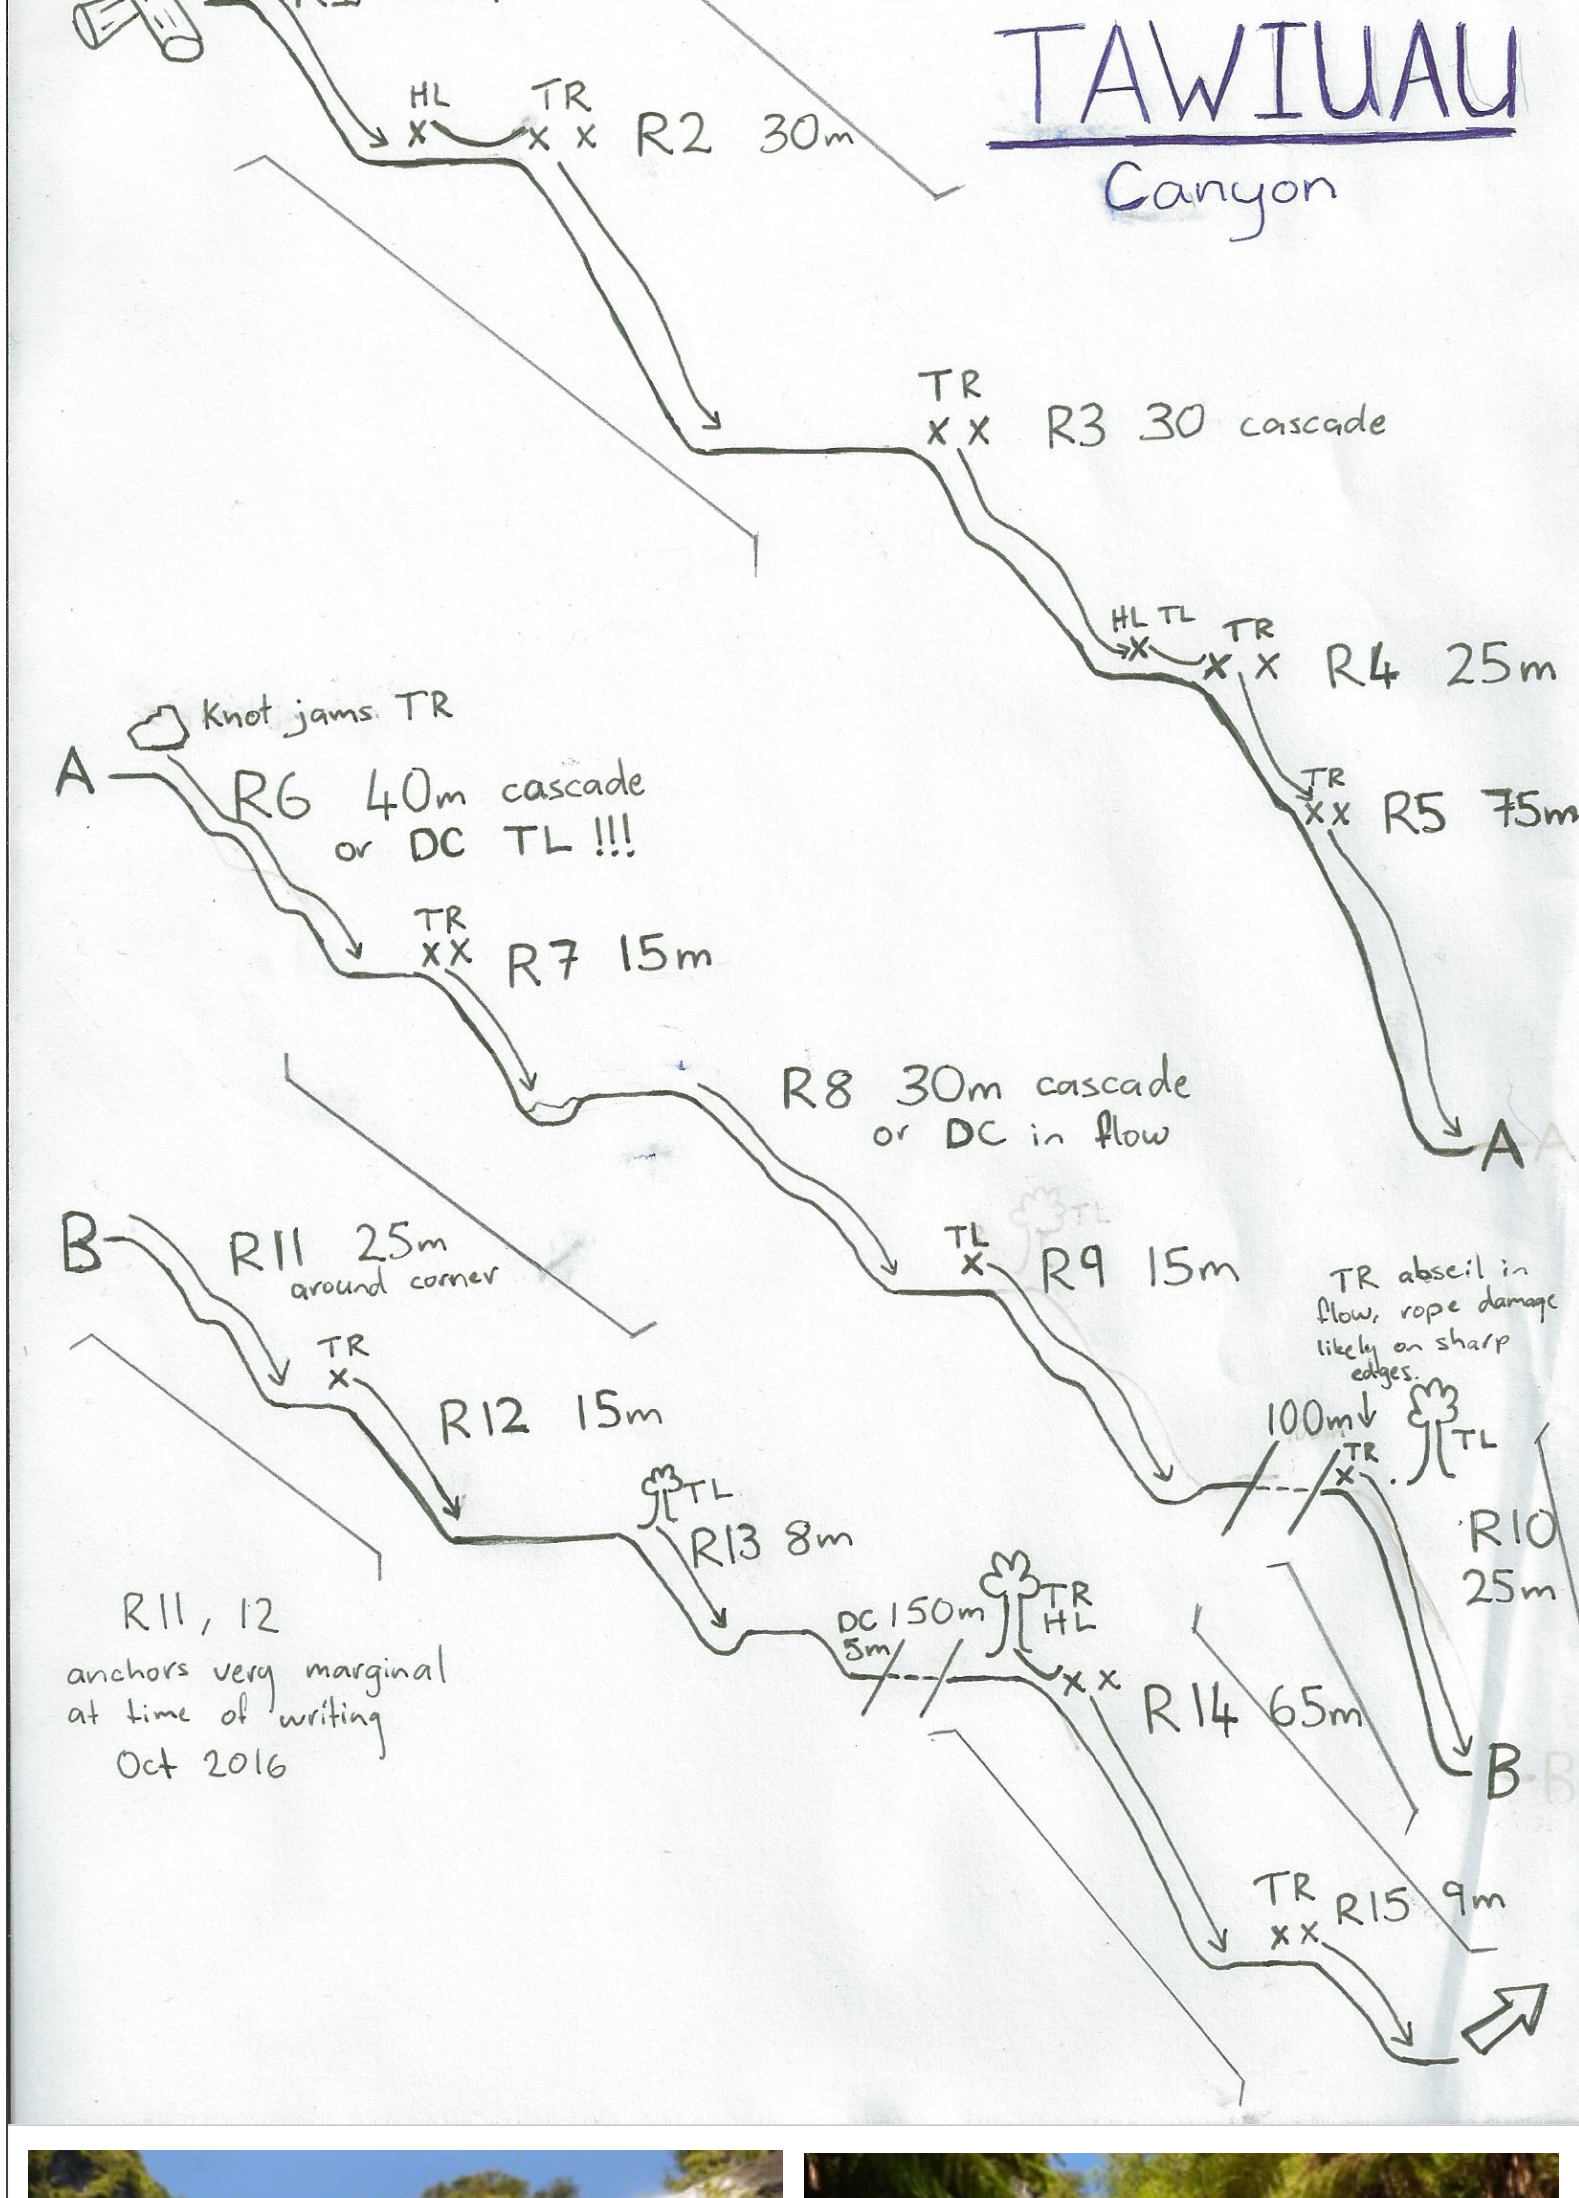 TAWIUAU
Canyon
HL TR
R2 30m
TR
R3 30 cascade
HL TL TR
R4 25m
TR
R5 75m
A
Knot jams TR
A
R6 40m cascade
or DC TL !!!
TR
R7 15m
R8 30m cascade
or DC in flow
TL
R9 15m
TR abseil in
flow, rope damage
likely on sharp
edges.
100m
TR
TL
R10
25m
B
B
R11 25m
around corner
TR
R12 15m
TL
R13 8m
DC
5m
150m
TR
HL
R14 65m
TR
R15 9m
R11, 12
anchors very marginal
at time of writing
Oct 2016